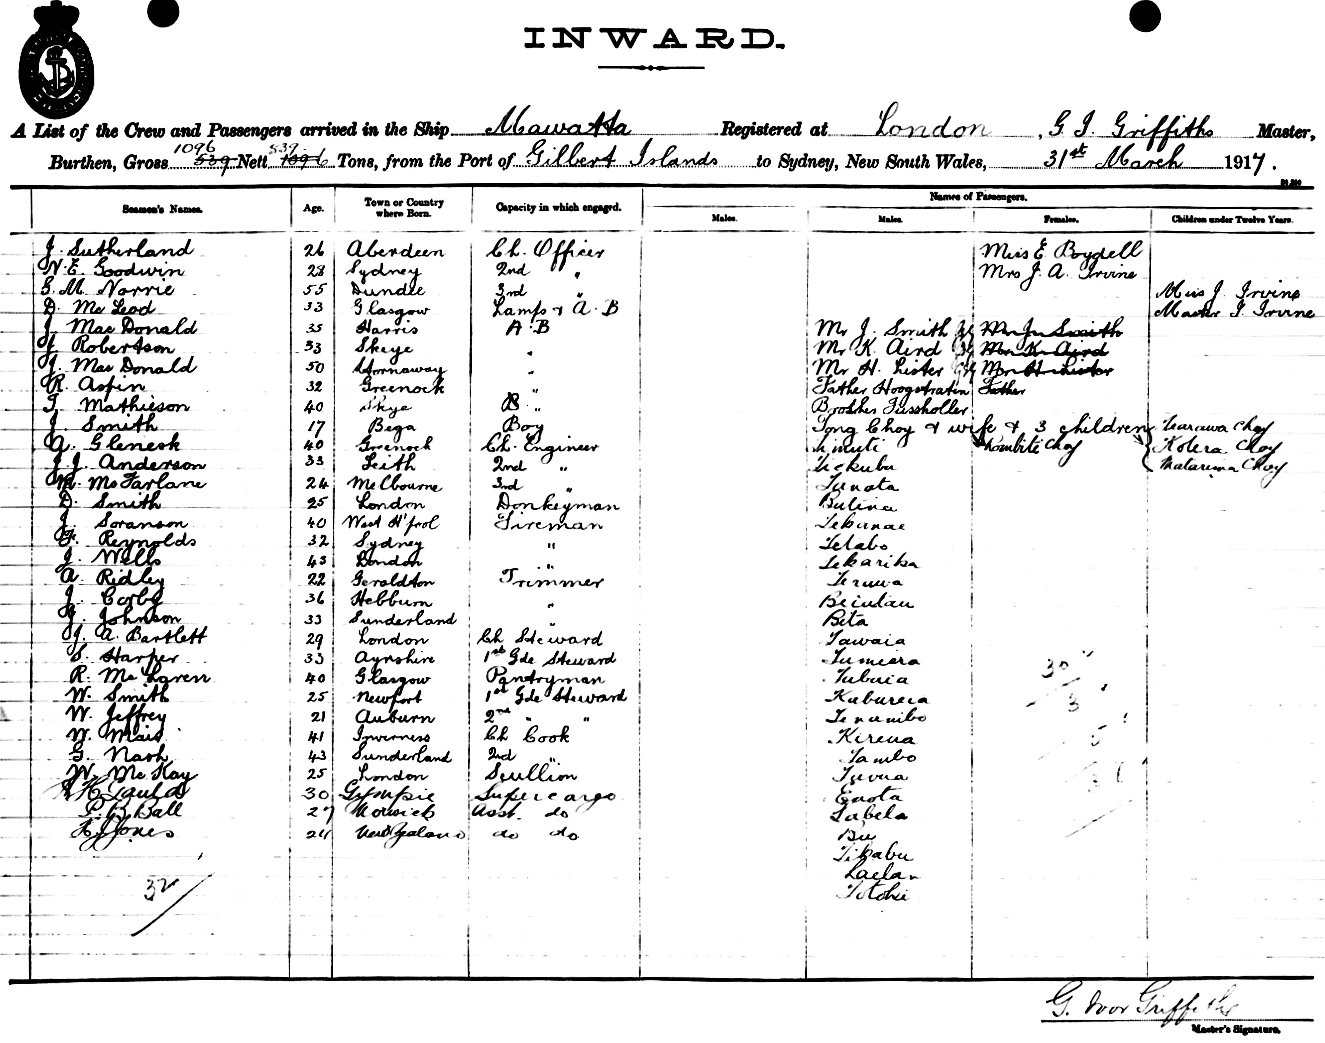 INWARD.
A List of the Crew and Passengers arrived in the Ship Mawatta Registered at London, G I Griffiths Master,
1096 539
Burthen, Gross 539 Nett 1096 Tons, from the Port of Gilbert Islands to Sydney, New South Wales, 31st March 1917.
Names of Passengers.
Seamen's Names. Age. Town or Country where Born. Capacity in which engaged. Males. Males. Females. Children under Twelve Years.
J. Sutherland 26 Aberdeen Ch. Officer Miss E Boydell
W. E. Goodwin 23 Sydney 2nd " Mrs J. A. Irvine
G. M. Norrie 55 Dundee 3rd " Miss J. Irvine
D. Mc Leod 33 Glasgow Lamps & A. B Master I Irvine
J. Mac Donald 35 Harris A. B Mr J. Smith Mr J. Smith
J. Robertson 33 Skye " Mr K. Aird Mr K. Aird
J. Mac Donald 50 Stornaway " Mr H. Lister Mr H. Lister
R. Aspin 32 Greenock " Father Hoogstratin Father
T. Mathieson 40 Skye B " Brother Fussholler
J. Smith 17 Bega Boy Tong Choy & wife & 3 children Tearuwa Choy
A. Glenesk 40 Grenock Ch. Engineer Timuti Kambite Choy Kotera Choy
J. J. Anderson 33 Leith 2nd " Tekubu Matarima Choy
M. Mc Farlane 24 Melbourne 3rd " Tanata
D. Smith 25 London Donkeyman Butina
J. Soranson 40 West H'pool Fireman Tebanae
F. Reynolds 32 Sydney " Tetabo
J. Wells 43 London " Tekariba
A. Ridley 22 Geraldton Trimmer Teruwa
J. Corby 36 Hebburn " Beiutau
J. Johnson 33 Sunderland " Bita
J. A. Bartlett 29 London Ch Steward Tawaia
S. Harper 33 Ayrshire 1st Gde Steward Tumeera
R. Mc Laren 40 Glasgow Pantryman Tubuia
W. Smith 25 Newport 1st Gde Steward Kabureia
W. Jeffrey 21 Auburn 2nd " " Tenambo
W. Mair 41 Inverness Ch Cook Kireua
G. Nash 43 Sunderland 2nd " Tambo
W. Mc Kay 25 London Scullion Tuvua
H Gauld 30 Gympie Supercargo Enota
P. B. Ball 27 Norwich Asst. do Tabela
H J Jones 24 New Zealand do do Bu
Tikabu
32 Laelan
Totobie
G. Ivor Griffiths
Master's Signature.